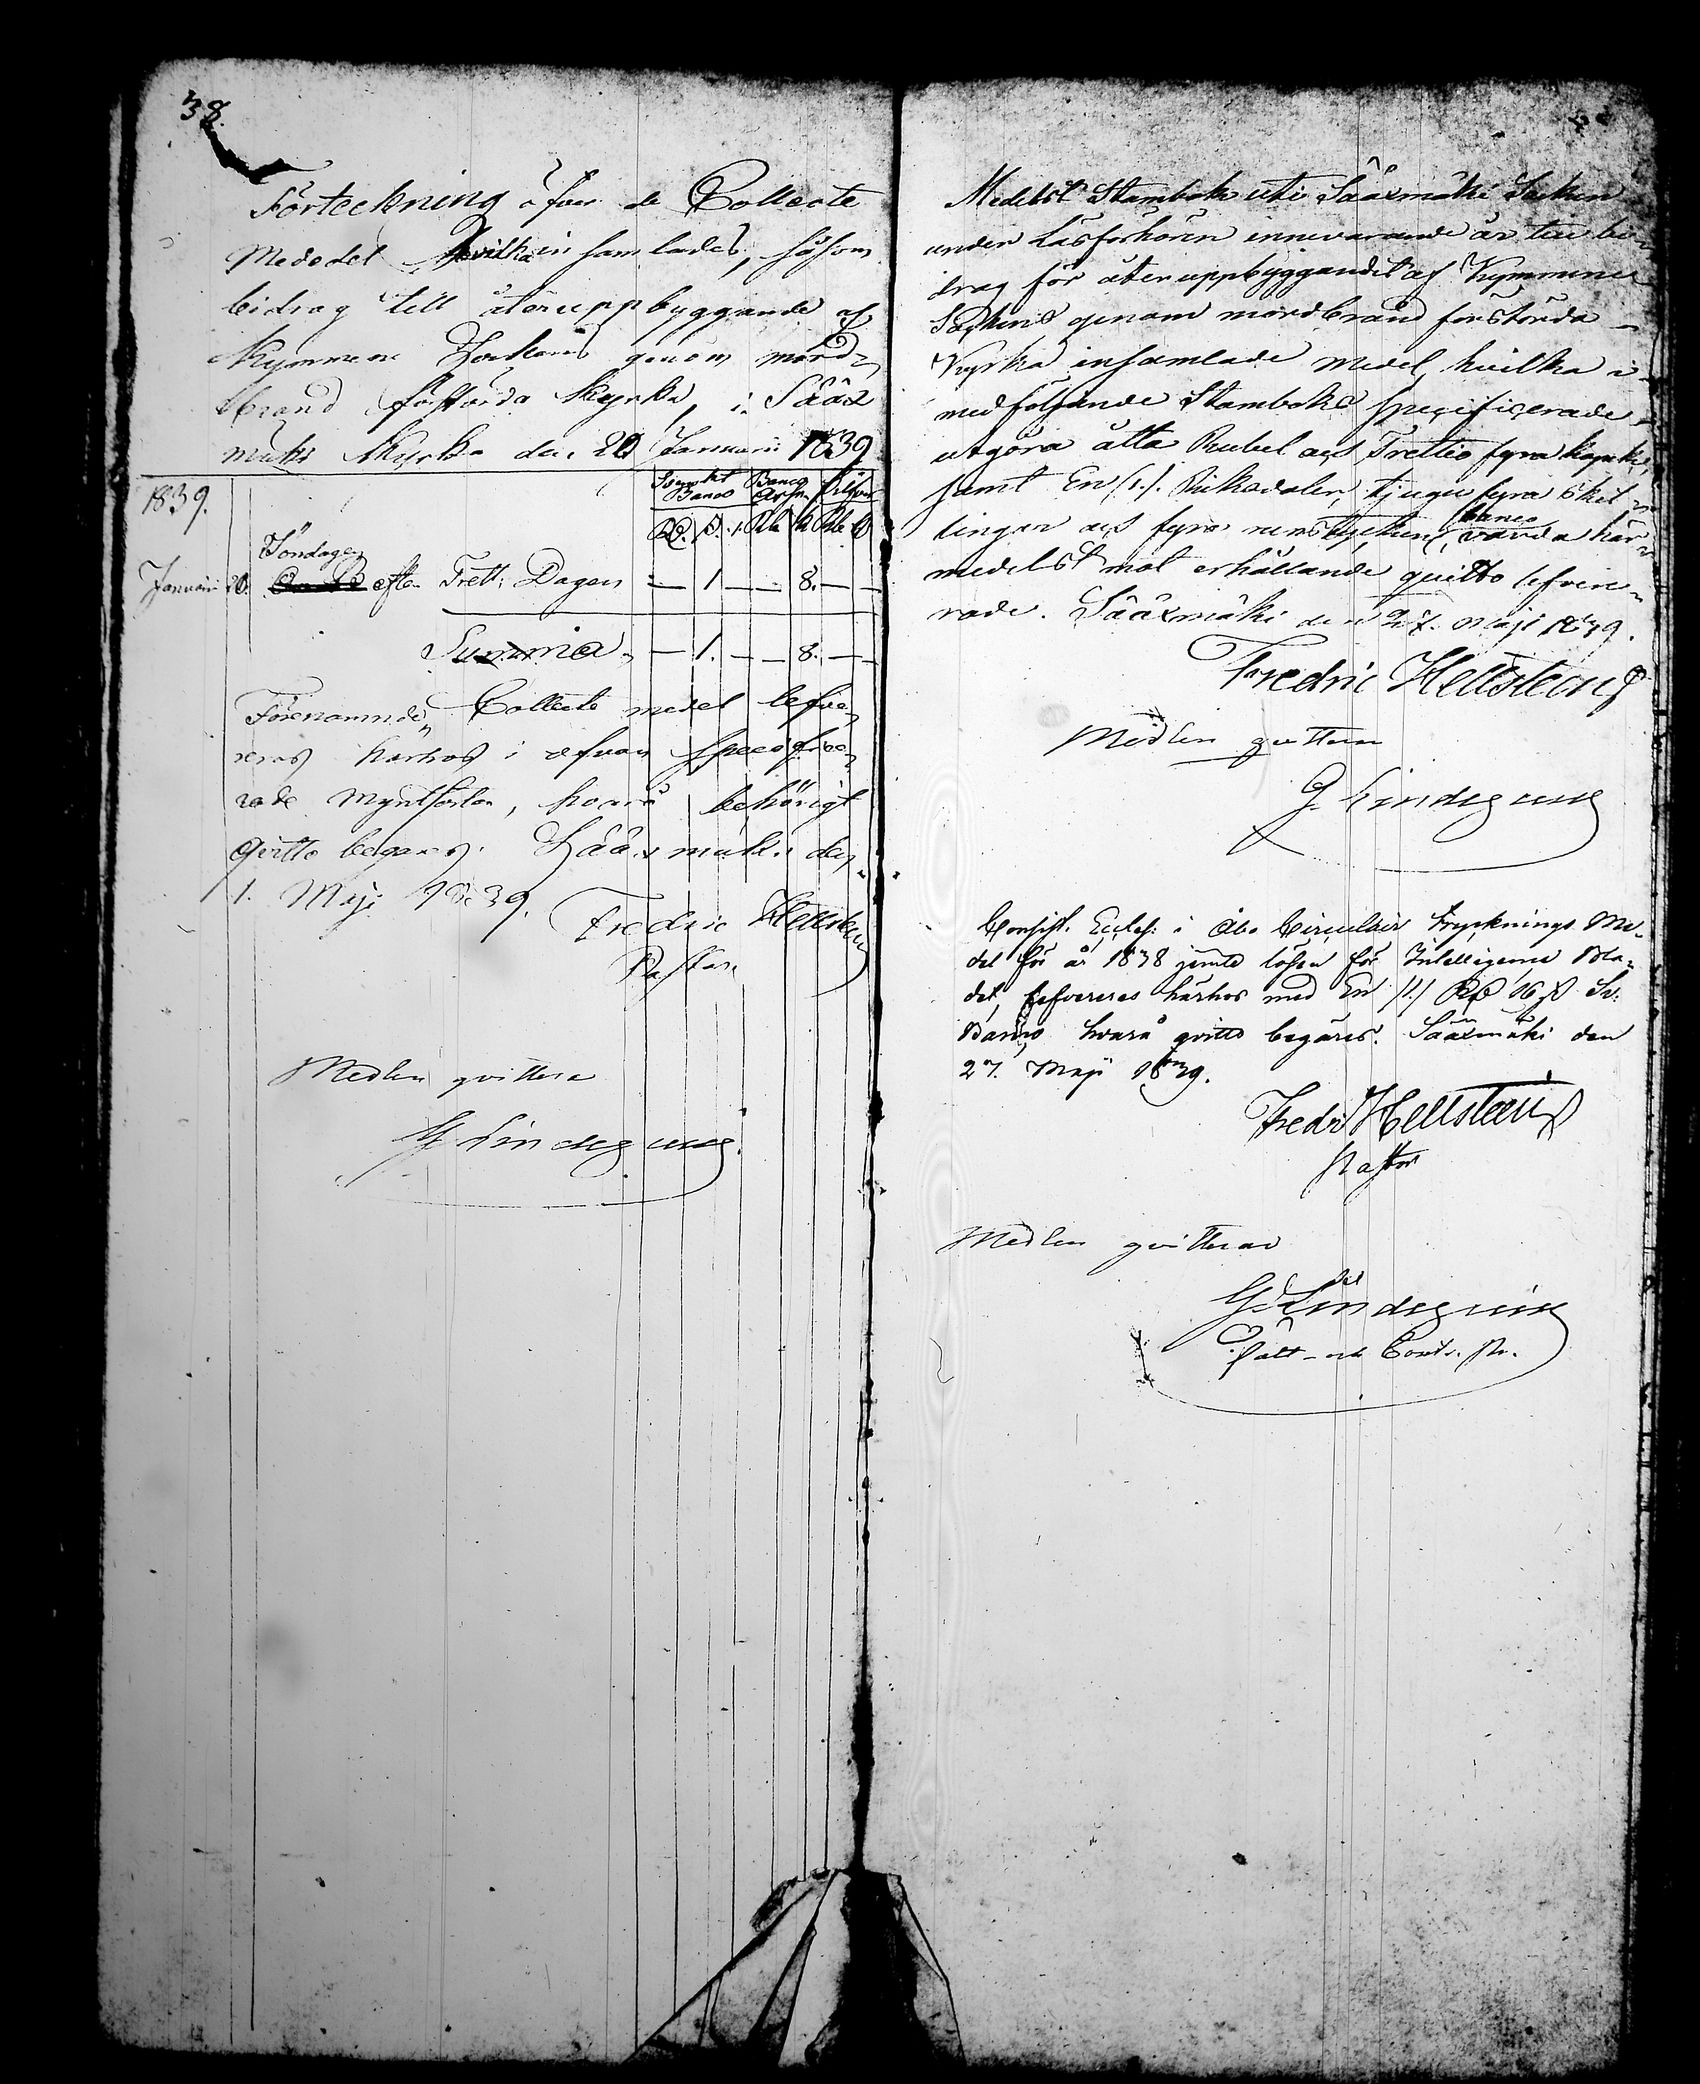 38.
Förteckning öfver de Collecte
Medel hvilka insamlades, såsom
bidrag till återuppbyggande af
Kymmene Sockens genom mord-
brand förstörda Kyrka, i Sääx
mäki Kyrka den 20 Januarii 1839
1839.
Svenskt Banco Banco Silfver
Söndagen
Januari 20. efter Trett: Dagen — 1 — — 8. — —
Summa — 1. — — 8. — —
Förenämnde Collecte medel lefve-
reras härhos i ofvan specifice-
rade Myntsorter, hvarå behörigt
qvitto begäres. Sääxmäki den
1. Maji 1839.
Fredric Hellsteen
Pastor
Medlen qvitteras
G Lindegren
Medelst Stambok uti Sääxmäki Socken
under Läsförhören innevarande år till bi-
drag för återuppbyggandet af Kymmene
Sockens genom mordbrand förstörda
Kyrka insamlade medel, hvilka i
medföljande Stamboks specificerade
utgöra åtta Rubel och Trettio fyra kopek
samt En (1.). Riksdaler, tjugu fyra skil-
lingar och fyra runstycken, banco varda här-
medelst mot erhållande quitto lefvere-
rade. Sääxmäki den 27. Maji 1839.
Fredric Hellsteen
Medlen qvitteras
G. Lindegren
Consist. Eccles: i Åbo Circulair trycknings Me-
del för år 1838 jemte lösen för Intelligence Bla-
det, lefvereras härhos med En /1./ Rd 16 s Sv.
Banco hvarå qvitto begäres. Sääxmäki den
27. Maji 1839.
Fredr Hellsteen
Pastor
Medlen qvitteras
G. Lindegren
Prost och Contr. Pr.